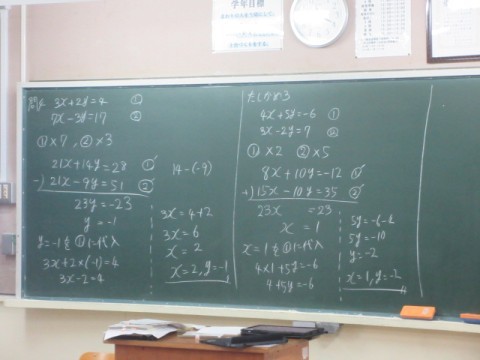 学年目標
問4 3x+2y=4 ①
7x-3y=17 ②
①×7, ②×3
21x+14y=28 ①'
-) 21x-9y=51 ②'
23y=-23
y=-1
y=-1を①に代入
3x+2×(-1)=4
3x-2=4
14-(-9)
3x=4+2
3x=6
x=2
x=2, y=-1
たしかめ3
4x+5y=-6 ①
3x-2y=7 ②
①×2 ②×5
8x+10y=-12 ①'
+) 15x-10y=35 ②'
23x =23
x=1
x=1を①に代入
4×1+5y=-6
4+5y=-6
5y=-10
y=-2
x=1, y=-2